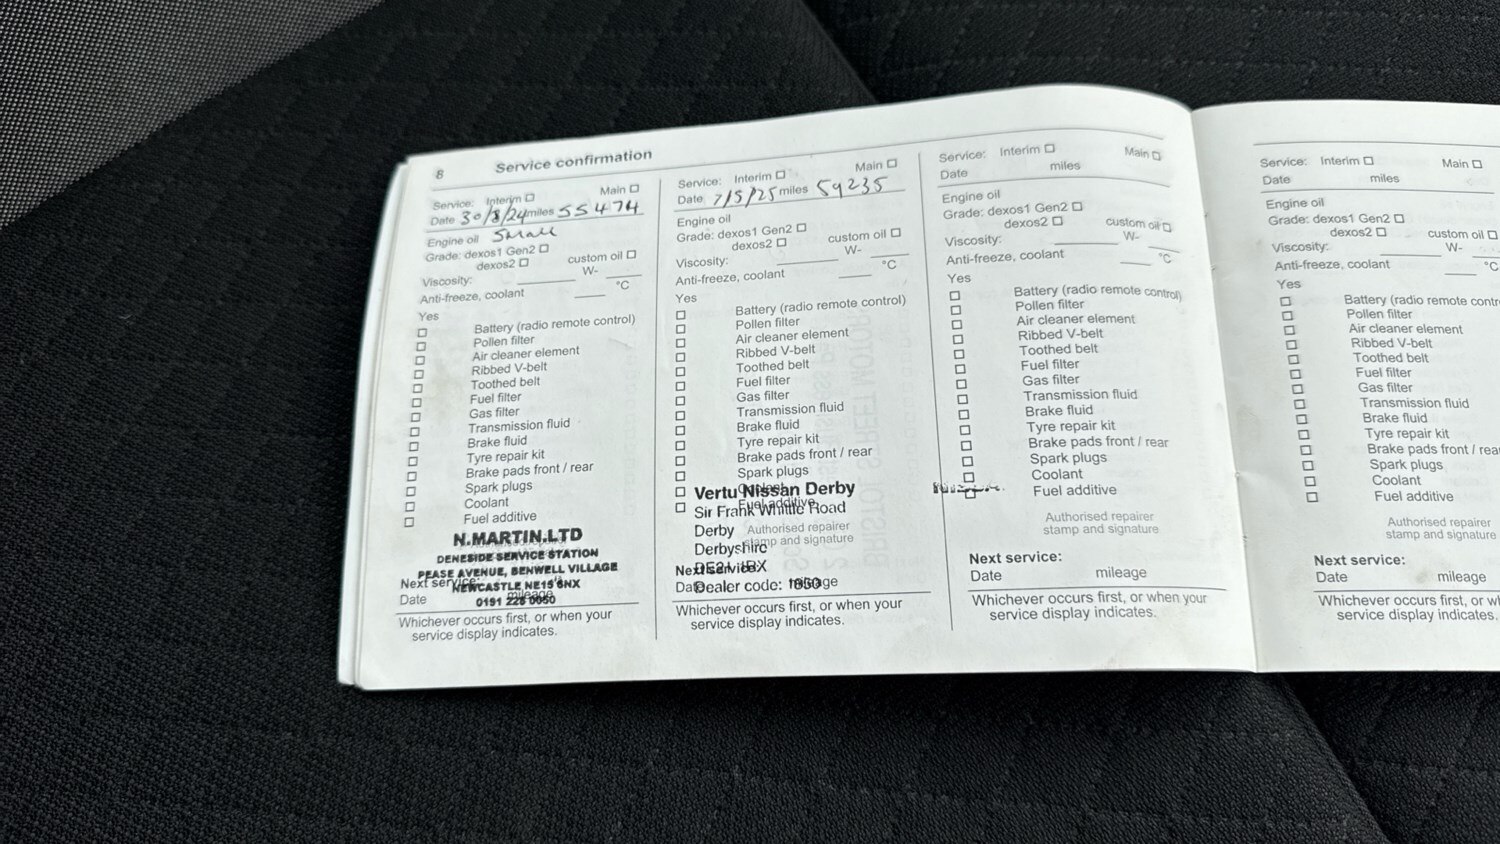 8 Service confirmation
Service: Interim Main
Date 30/8/24 miles 55474
Engine oil Small
Grade: dexos1 Gen2
dexos2 custom oil
Viscosity: W-
Anti-freeze, coolant °C
Yes
Battery (radio remote control)
Pollen filter
Air cleaner element
Ribbed V-belt
Toothed belt
Fuel filter
Gas filter
Transmission fluid
Brake fluid
Tyre repair kit
Brake pads front / rear
Spark plugs
Coolant
Fuel additive
N.MARTIN.LTD
DENESIDE SERVICE STATION
PEASE AVENUE, BENWELL VILLAGE
Next service:
NEWCASTLE NE15 8NX
Date mileage
0191 228 0050
Whichever occurs first, or when your
service display indicates.
Service: Interim Main
Date 7/5/25 miles 59235
Engine oil
Grade: dexos1 Gen2
dexos2 custom oil
Viscosity: W-
Anti-freeze, coolant °C
Yes
Battery (radio remote control)
Pollen filter
Air cleaner element
Ribbed V-belt
Toothed belt
Fuel filter
Gas filter
Transmission fluid
Brake fluid
Tyre repair kit
Brake pads front / rear
Spark plugs
Coolant
Fuel additive
Vertu Nissan Derby
Sir Frank Whittle Road
Derby
Authorised repairer
stamp and signature
Derbyshire
Next service:
Date mileage
Dealer code: 1850
Whichever occurs first, or when your
service display indicates.
Service: Interim Main
Date miles
Engine oil
Grade: dexos1 Gen2
dexos2 custom oil
Viscosity: W-
Anti-freeze, coolant °C
Yes
Battery (radio remote control)
Pollen filter
Air cleaner element
Ribbed V-belt
Toothed belt
Fuel filter
Gas filter
Transmission fluid
Brake fluid
Tyre repair kit
Brake pads front / rear
Spark plugs
Coolant
Fuel additive
Authorised repairer
stamp and signature
Next service:
Date mileage
Whichever occurs first, or when your
service display indicates.
Service: Interim Main
Date miles
Engine oil
Grade: dexos1 Gen2
dexos2 custom oil
Viscosity: W-
Anti-freeze, coolant °C
Yes
Battery (radio remote contr
Pollen filter
Air cleaner element
Ribbed V-belt
Toothed belt
Fuel filter
Gas filter
Transmission fluid
Brake fluid
Tyre repair kit
Brake pads front / rea
Spark plugs
Coolant
Fuel additive
Authorised repairer
stamp and signature
Next service:
Date mileage
Whichever occurs first, or wh
service display indicates.